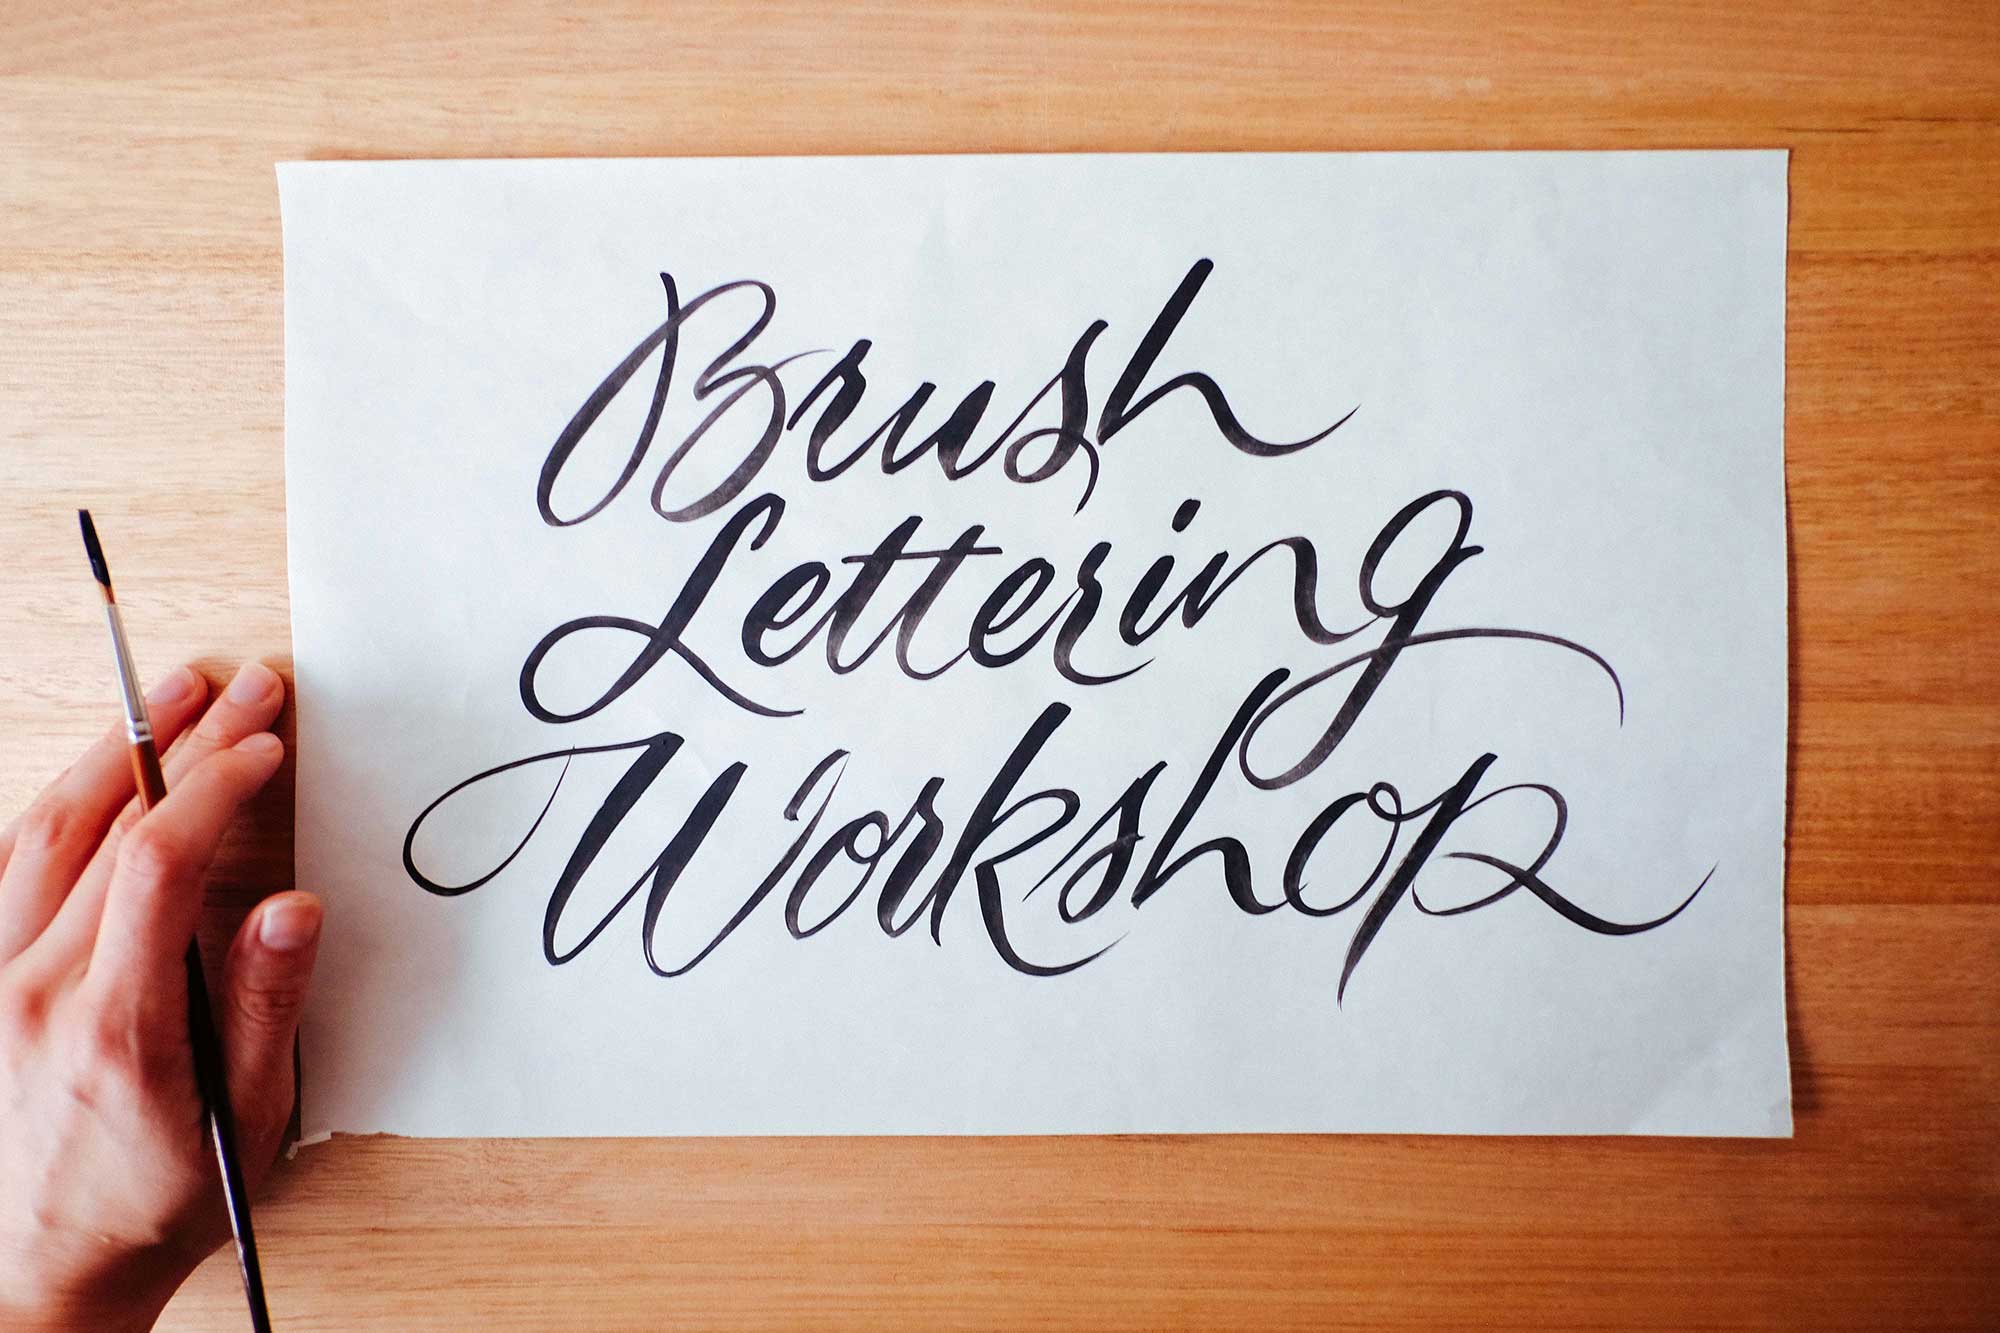 Brush
Lettering
Workshop